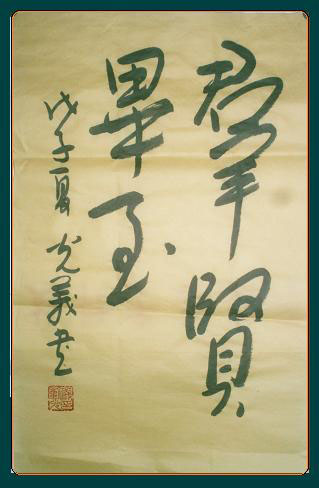 羣賢
畢至
戊子夏光義书